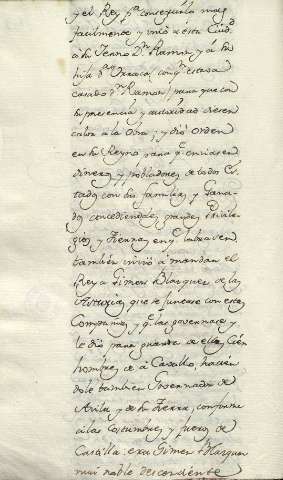 y el Rey p.ª conseguirlo mas
facilmente y vino a esta Ciud.
a su Yerno D.ⁿ Ramon, y a su
hija D.ª Urraca, con q.ⁿ estava
casado D.ⁿ Ramon, para que con
su presencia y autoridad diesen
calor a la Obra; y dió orden
en su Reyno para q.ᵉ enviasen
dinero, y pobladores de todos Es-
tados con sus familias y Gana-
dos concediendoles grandes Privile-
gios, y Tierras en q.ᵉ labrasen
tambien invió a mandar el
Rey a Gimen Blazquez de las
Asturias que se juntase con estas
Compañias, y q.ᵉ las governase y
le dió para guarda de ellas Cien
hombres de á Cavallo, hacien
dole tambien Governador de
Avila, y de su Tierra, conforme
a las costumbres y fueros de
Castilla: era Gimen Blazquez
mui noble descendiente